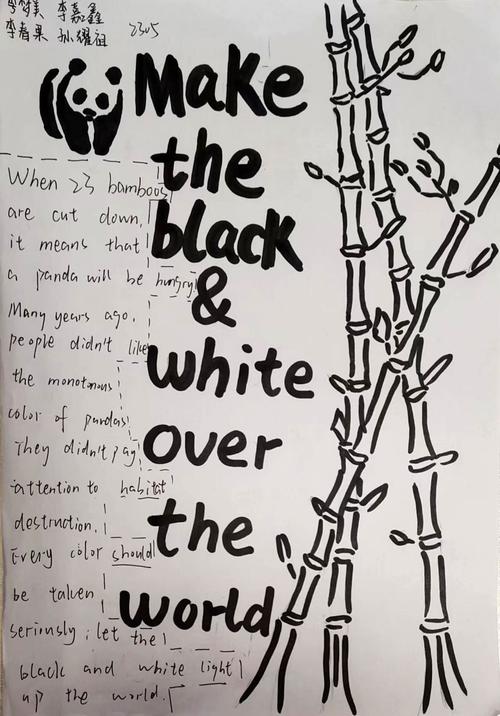 李嘉鑫
李春果 孙耀祖 2305
Make
the
black
&
white
over
the
world
When 23 bamboos
are cut down,
it means that
a panda will be hungry.
Many years ago,
people didn't like
the monotonous
color of pandas.
They didn't pay
attention to habitat
destruction.
Every color should
be taken
seriously, let the
black and white light
up the world.